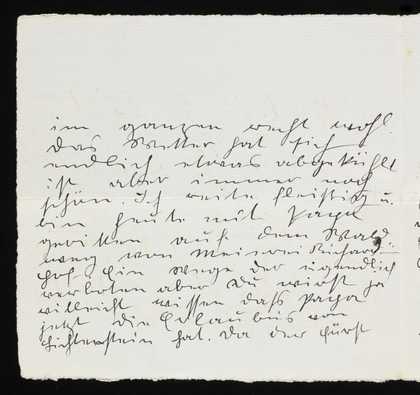 im ganzen recht wohl.
Das Wetter hat sich
endlich etwas abgekühlt
ist aber immer noch
schön. Ich reite fleißig u.
bin heute mit Papa
geritten auf dem Wald
weg von Meierei Richard
hof. Ein Wege der eigendlich
verboten aber Du wirst ja
villeicht wissen dass Papa
jetzt die Erlaubnis von
Lichtenstein hat. Da der Fürst